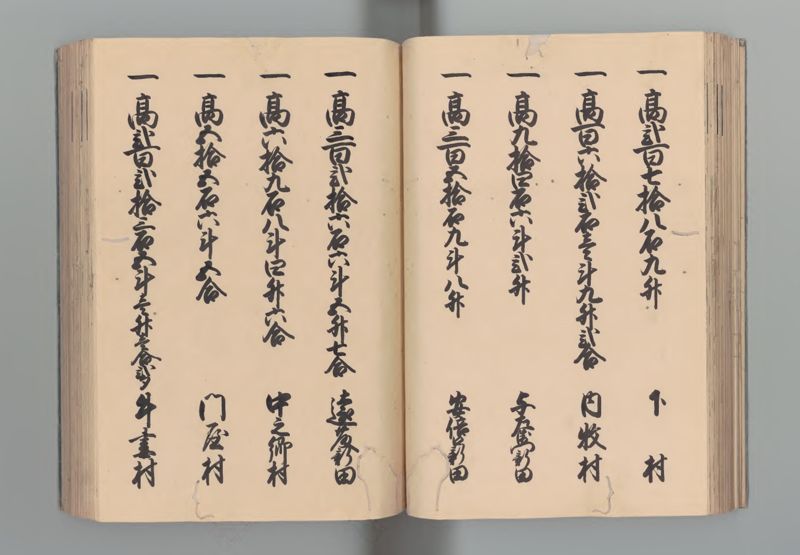 一高弐百七拾八石九升 下村
一高百六拾弐石壱斗九升弐合 内牧村
一高九拾四石六斗弐升 与左衛門新田
一高三百五拾石九斗八升 安倍新田
一高三百弐拾六石六斗五升七合 遠藤新田
一高六拾九石八斗四升六合 中之郷村
一高五拾五石六斗五合 門屋村
一高弐百弐拾三石五斗壱升壱合弐夕 牛妻村